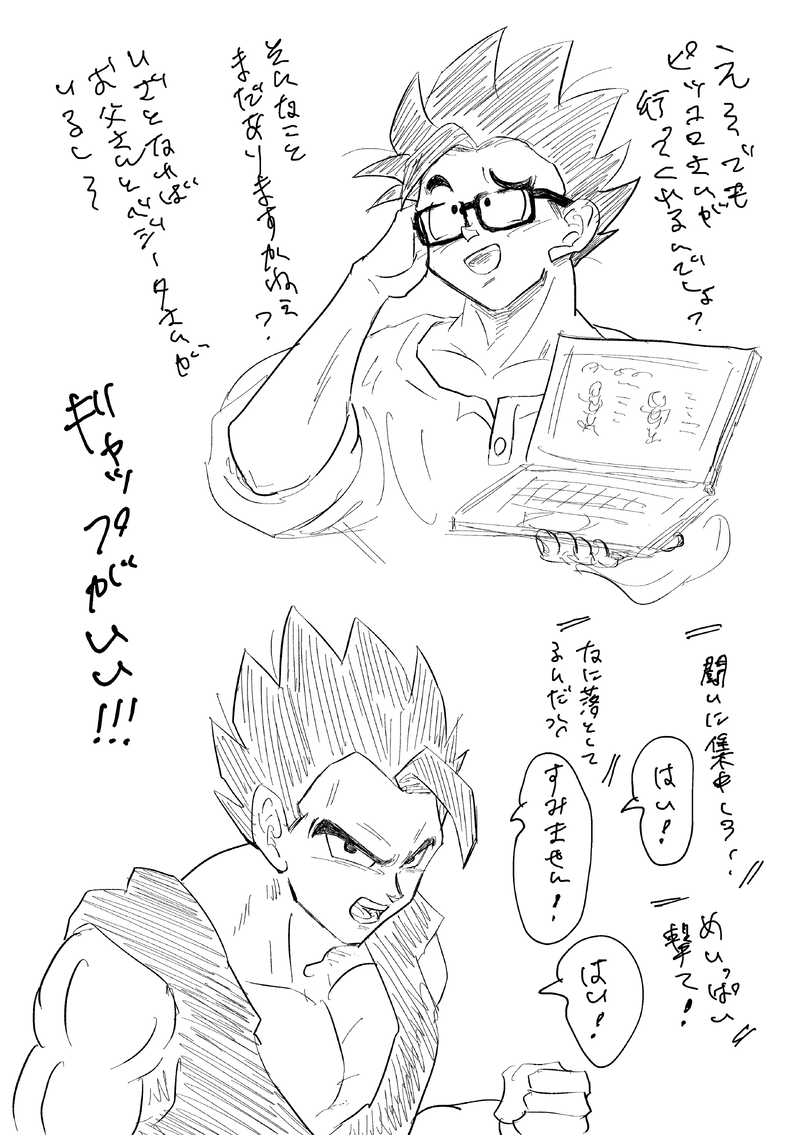 えっでも
ピッコロさんが
行ってくれるんでしょ？
そんなこと
まだありますかねぇ？
いざとなれば
お父さんとベジータさんが
いるし〜
ギャップがいい!!!
闘いに集中しろ！
はい！
なに落として
るんだっ
すみません！
めいっぱい
撃て！
はい！